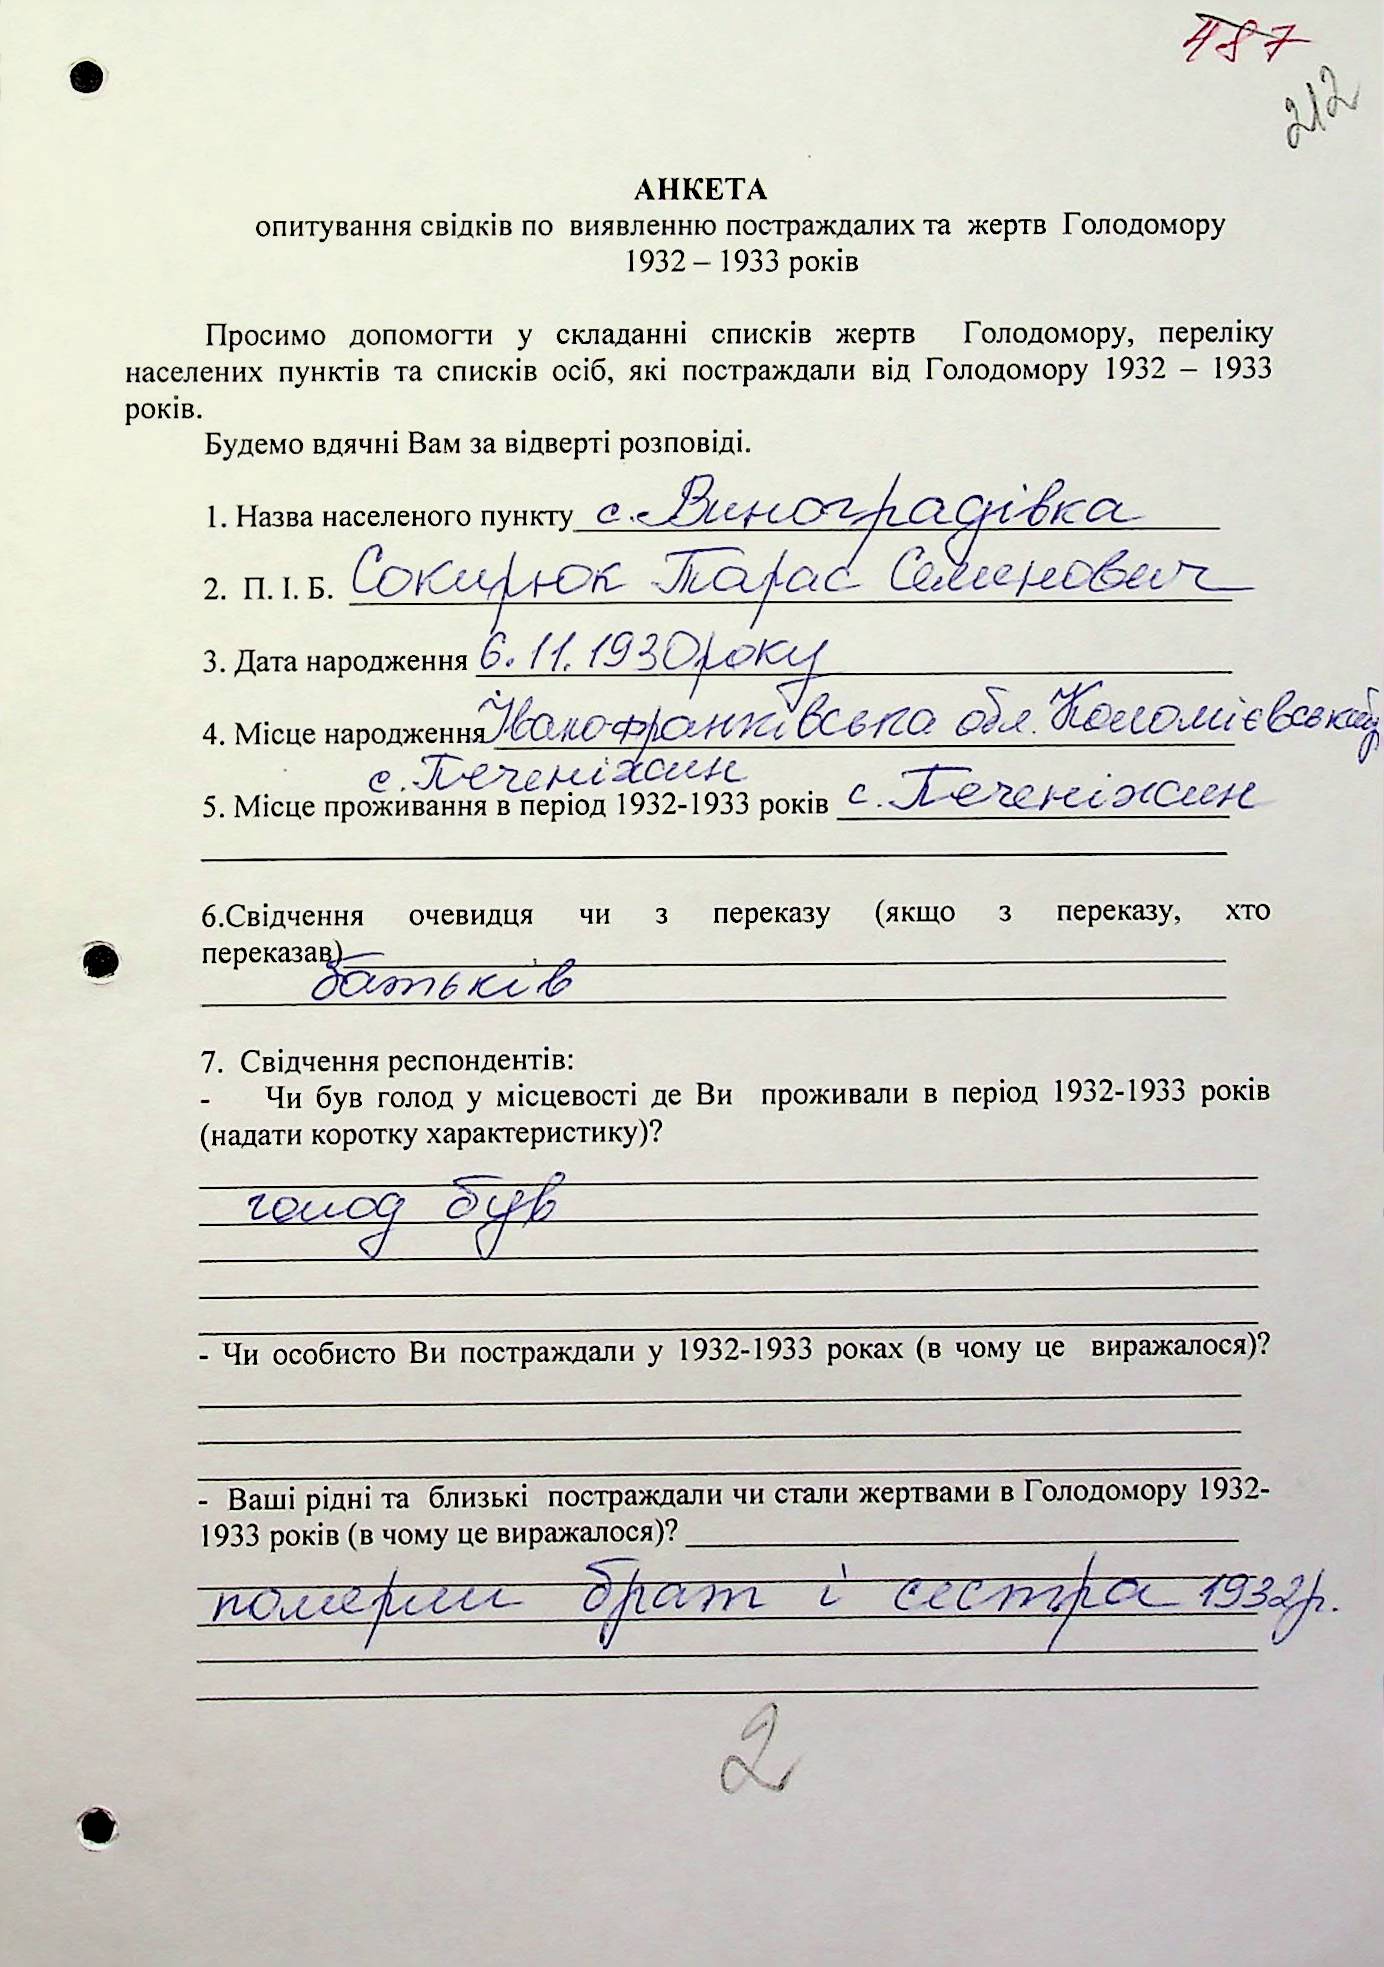 487
212
АНКЕТА
опитування свідків по виявленню постраждалих та жертв Голодомору
1932 – 1933 років
Просимо допомогти у складанні списків жертв Голодомору, переліку
населених пунктів та списків осіб, які постраждали від Голодомору 1932 – 1933
років.
Будемо вдячні Вам за відверті розповіді.
1. Назва населеного пункту с. Виноградівка
2. П. І. Б. Сокирюк Тарас Семенович
3. Дата народження 6.11.1930 року
4. Місце народження Івано франківська обл. Коломієвський
с. Печеніжин
5. Місце проживання в період 1932-1933 років с. Печеніжин
6.Свідчення очевидця чи з переказу (якщо з переказу, хто
переказав)
батьків
7. Свідчення респондентів:
- Чи був голод у місцевості де Ви проживали в період 1932-1933 років
(надати коротку характеристику)?
голод був
- Чи особисто Ви постраждали у 1932-1933 роках (в чому це виражалося)?
- Ваші рідні та близькі постраждали чи стали жертвами в Голодомору 1932-
1933 років (в чому це виражалося)?
померли брат і сестра 1932р.
2